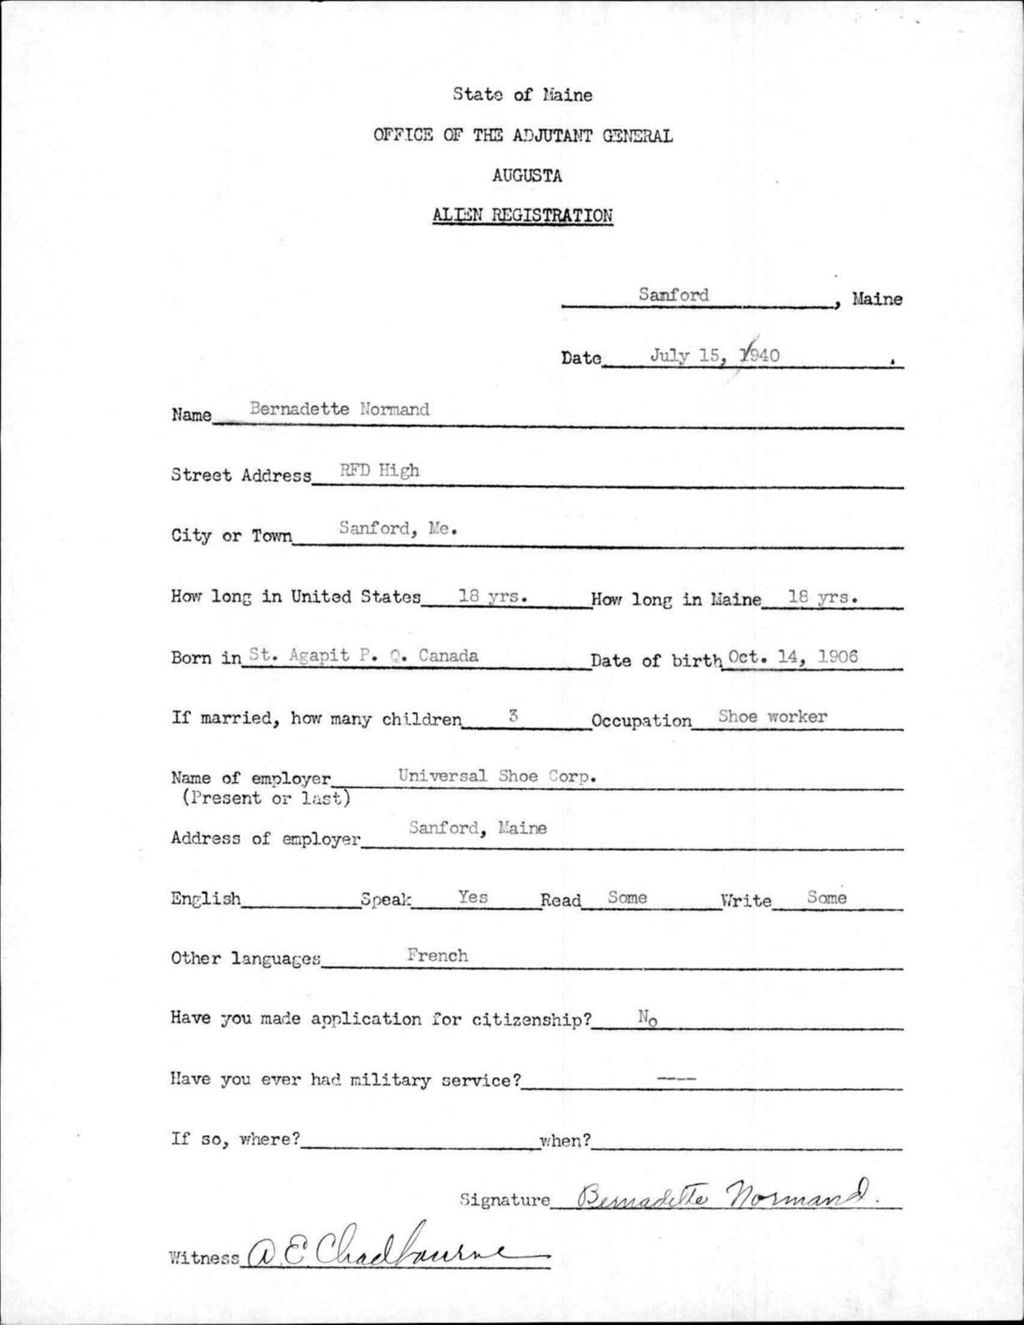 State of Maine
OFFICE OF THE ADJUTANT GENERAL
AUGUSTA
ALIEN REGISTRATION
Sanford, Maine
Date July 15, 1940.
Name Bernadette Normand
Street Address RFD High
City or Town Sanford, Me.
How long in United States 18 yrs. How long in Maine 18 yrs.
Born in St. Agapit P. Q. Canada Date of birth Oct. 14, 1906
If married, how many children 3 Occupation Shoe worker
Name of employer Universal Shoe Corp.
(Present or last)
Address of employer Sanford, Maine
English Speak Yes Read Some Write Some
Other languages French
Have you made application for citizenship? No
Have you ever had military service? ----
If so, where? when?
Signature Bernadette Normand.
Witness A. E. Chadbourne